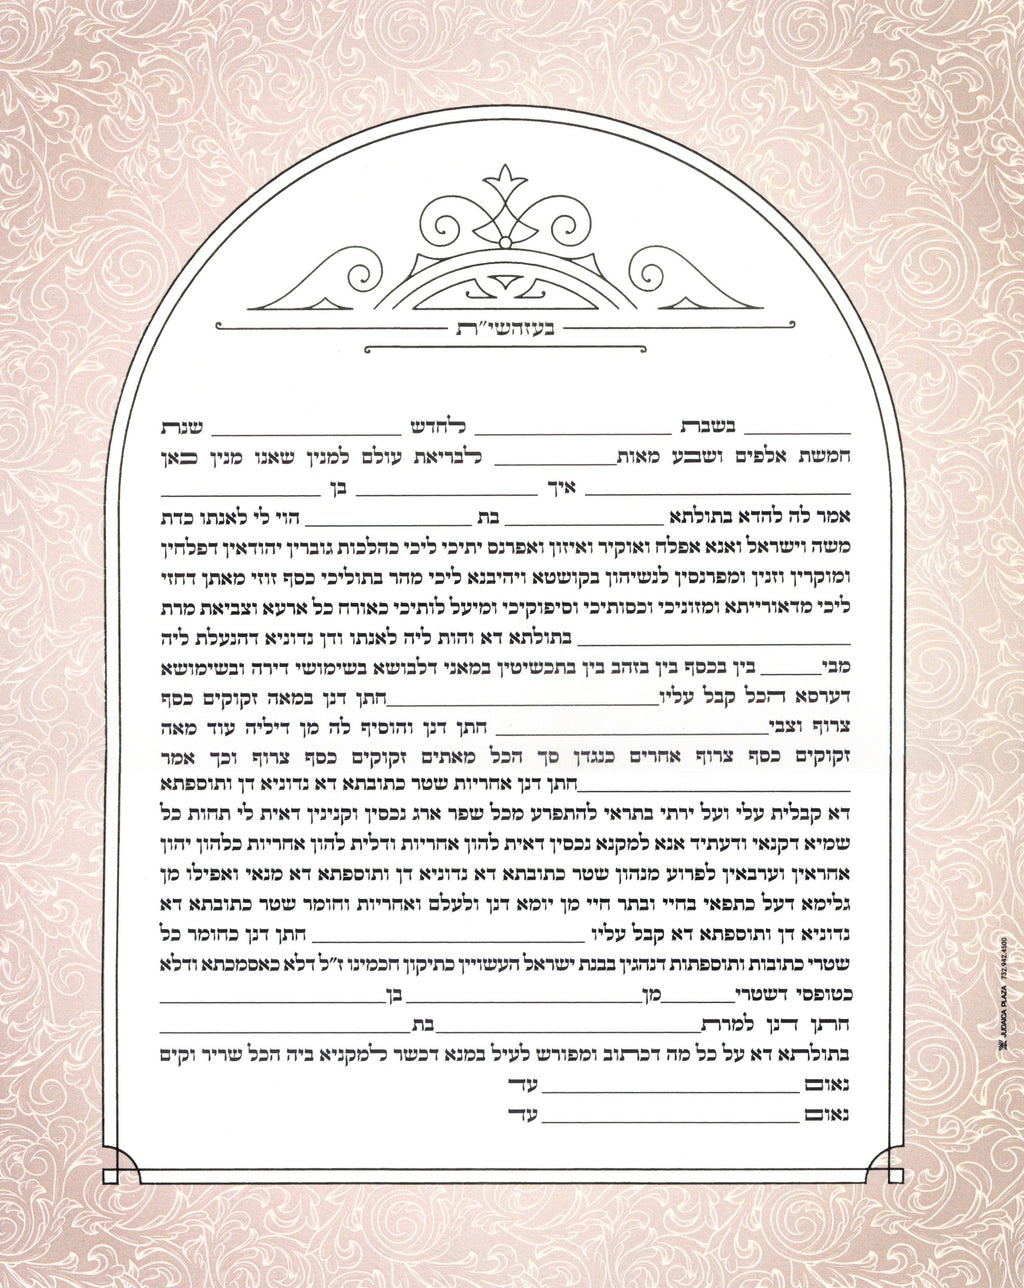 בעזהשי״ת
__________ בשבת __________ לחדש __________ שנת
חמשת אלפים ושבע מאות__________ לבריאת עולם למנין שאנו מנין כאן
__________ איך __________ בן __________
אמר לה להדא בתולתא __________ בת __________ הוי לי לאנתו כדת
משה וישראל ואנא אפלח ואוקיר ואיזון ואפרנס יתיכי ליכי כהלכות גוברין יהודאין דפלחין
ומוקרין וזנין ומפרנסין לנשיהון בקושטא ויהיבנא ליכי מהר בתוליכי כסף זוזי מאתן דחזי
ליכי מדאורייתא ומזוניכי וכסותיכי וסיפוקיכי ומיעל לותיכי כאורח כל ארעא וצביאת מרת
__________ בתולתא דא והות ליה לאנתו ודן נדוניא דהנעלת ליה
מבי______ בין בכסף בין בזהב בין בתכשיטין במאני דלבושא בשימושי דירה ובשימושא
דערסא הכל קבל עליו__________חתן דנן במאה זקוקים כסף
צרוף וצבי__________ חתן דנן והוסיף לה מן דיליה עוד מאה
זקוקים כסף צרוף אחרים כנגדן סך הכל מאתים זקוקים כסף צרוף וכך אמר
__________חתן דנן אחריות שטר כתובתא דא נדוניא דן ותוספתא
דא קבלית עלי ועל ירתי בתראי להתפרע מכל שפר ארג נכסין וקנינין דאית לי תחות כל
שמיא דקנאי ודעתיד אנא למקנא נכסין דאית להון אחריות ודלית להון אחריות כלהון יהון
אחראין וערבאין לפרוע מנהון שטר כתובתא דא נדוניא דן ותוספתא דא מנאי ואפילו מן
גלימא דעל כתפאי בחיי ובתר חיי מן יומא דנן ולעלם ואחריות וחומר שטר כתובתא דא
נדוניא דן ותוספתא דא קבל עליו __________ חתן דנן כחומר כל
שטרי כתובות ותוספתות דנהגין בבנת ישראל העשויין כתיקון חכמינו ז״ל דלא כאסמכתא ודלא
כטופסי דשטרי______מן__________בן__________
חתן דנן למרת__________בת__________
בתולתא דא על כל מה דכתוב ומפורש לעיל במנא דכשר למקניא ביה הכל שריר וקים
נאום __________ עד
נאום __________ עד
JUDAICA PLAZA 732.942.4500